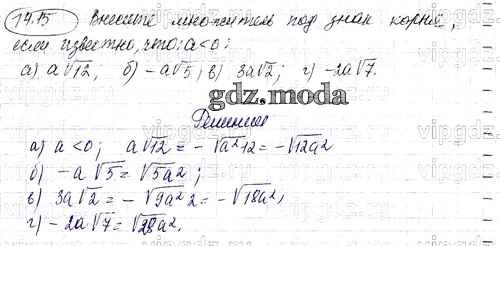 14.15 Внесите множитель под знак корня,
если известно, что: a<0:
а) a√12; б) -a√5; в) 3a√2; г) -2a√7.
gdz.moda
Решение
а) a<0; a√12 = -√a²12 = -√12a²
б) -a√5 = √5a²;
в) 3a√2 = -√9a²2 = -√18a²,
г) -2a√7 = √28a².